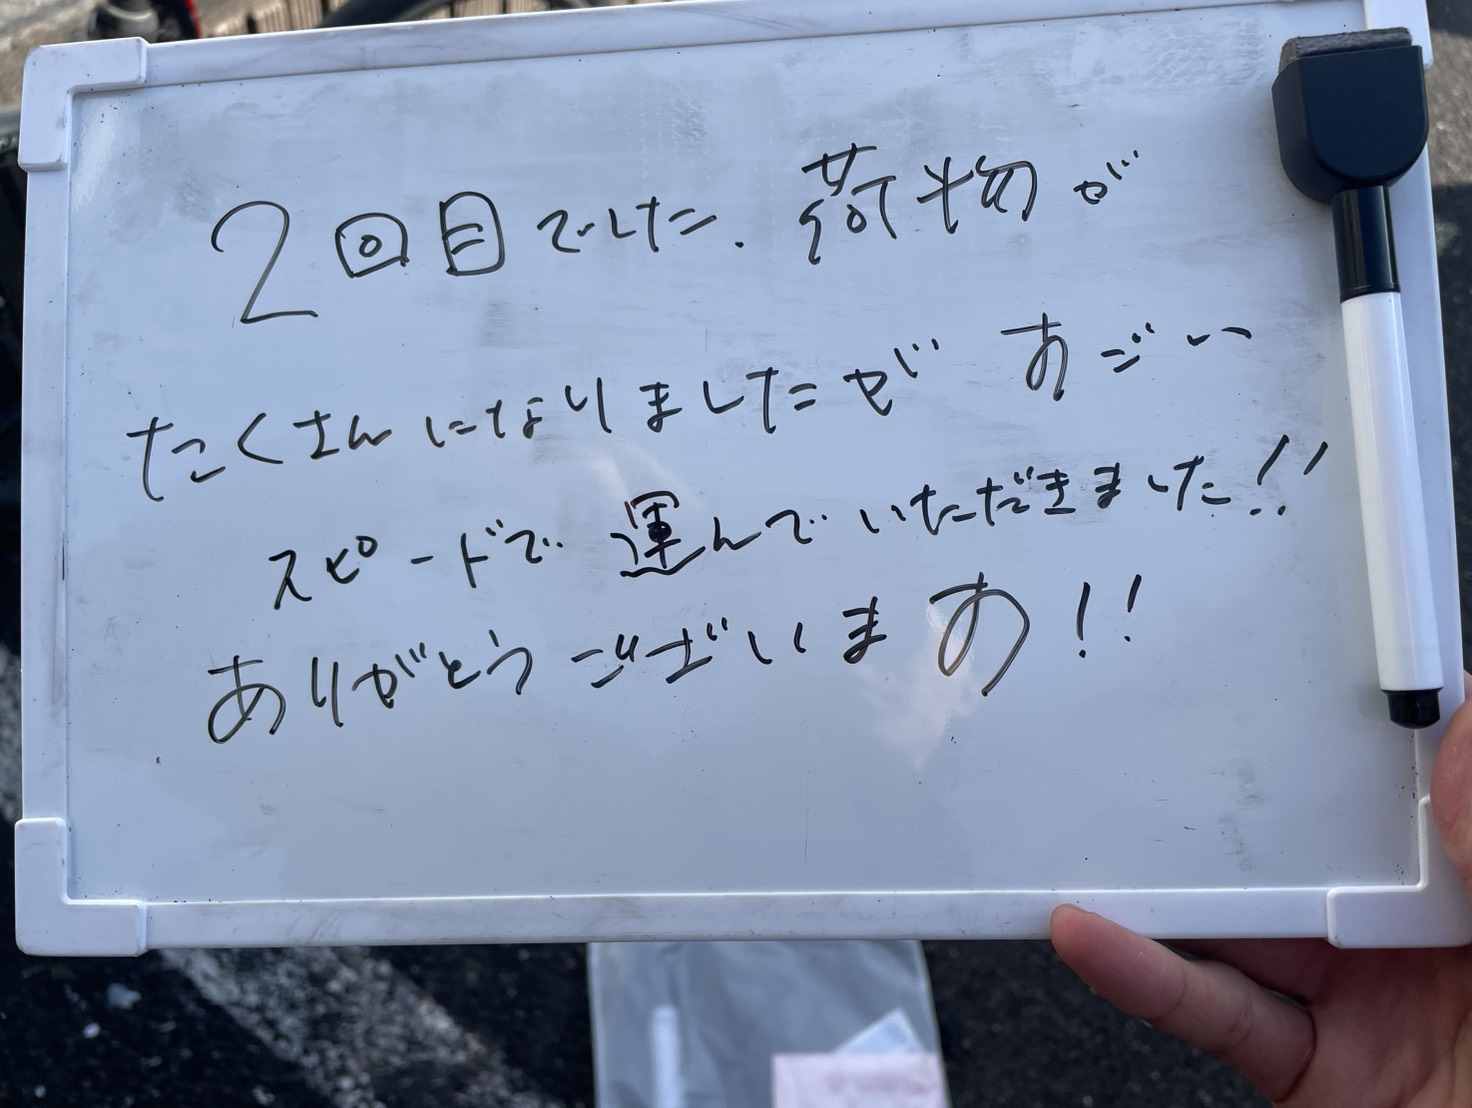 2回目でした. 荷物が
たくさんになりましたが すごい
スピードで 運んでいただきました!!
ありがとうございます!!